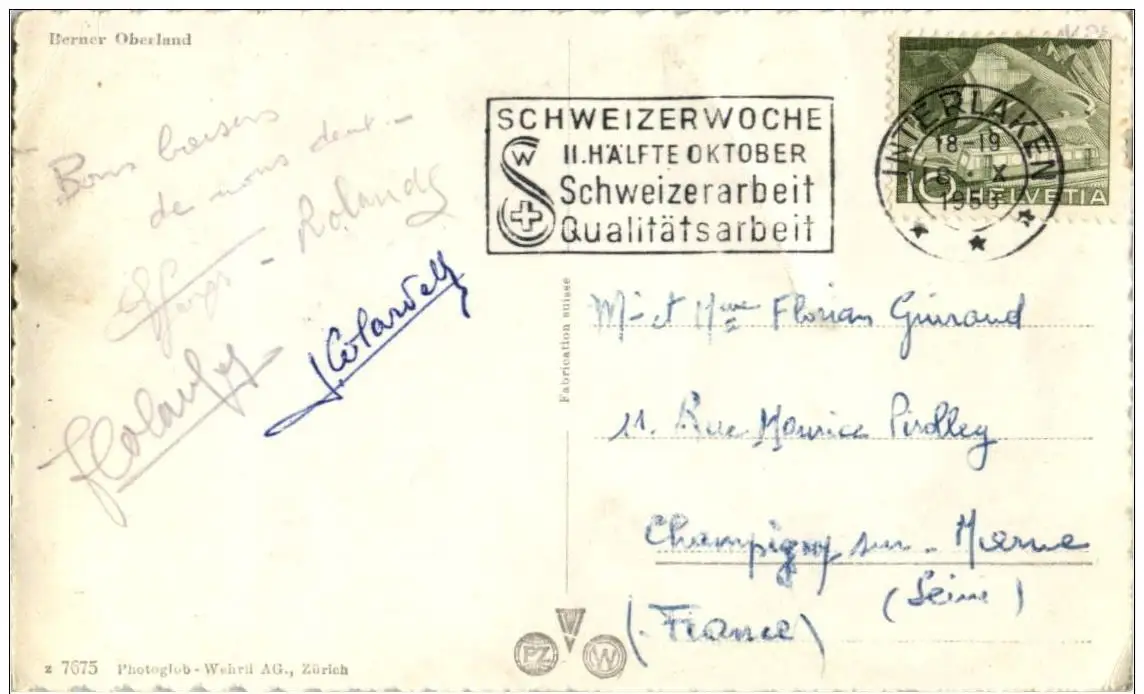 Berner Oberland
Bons baisers
de nous deux -
Rolande
SCHWEIZERWOCHE
II. HÄLFTE OKTOBER
Schweizerarbeit
Qualitätsarbeit
W
INTERLAKEN
18-19
X
10 HELVETIA
Fabrication suisse
Mr et Mme Florian Guiraud
11. Rue Maurice Pirolley
Champigny sur - Marne
(Seine)
(France)
PZ W
z 7675 Photoglob-Wehrli AG., Zürich